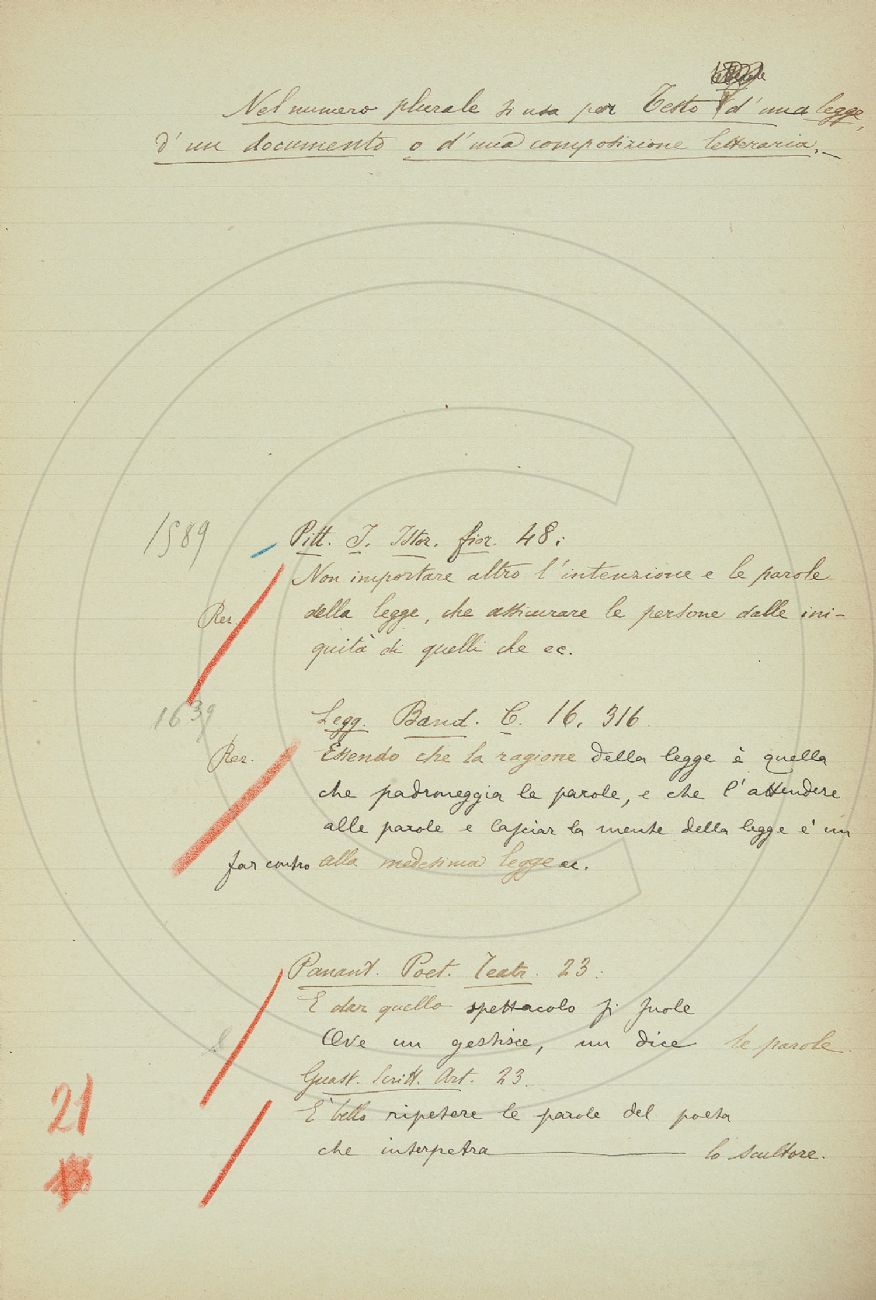 Nel numero plurale si usa per Testo d'una legge,
d'un documento o d'una composizione letteraria.
1589
Pitt. J. Istor. fior. 48:
Non importare altro l'intenzione e le parole
Rer.
della legge, che assicurare le persone dalle ini-
quità di quelli che ec.
1639
Legg. Band. C. 16. 316.
Rer.
Essendo che la ragione della legge è quella
che padroneggia le parole, e che l'attendere
alle parole e lasciar la mente della legge è un
far contro alla medesima legge ec.
Panant. Poet. Teatr. 23:
E dar quello spettacolo si suole
Ove un gestisce, un dice le parole.
Guast. Scritt. Art. 23.
È bello ripetere le parole del poeta
che interpetra lo scultore.
21